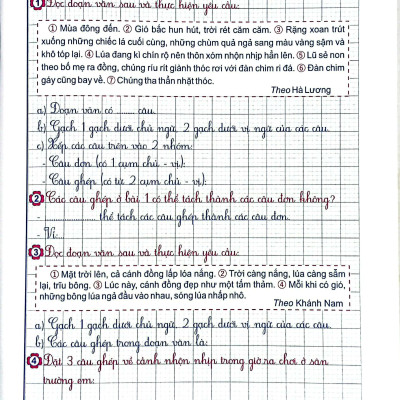 1 Đọc đoạn văn sau và thực hiện yêu cầu:
① Mùa đông đến. ② Gió bấc hun hút, trời rét căm căm. ③ Rặng xoan trút
xuống những chiếc lá cuối cùng, những chùm quả ngả sang màu vàng sậm và
khô tóp lại. ④ Lúa đang kì chín rộ nên thôn xóm nhộn nhịp hẳn lên. ⑤ Lũ sẻ non
theo bố mẹ ra đồng, chúng ríu rít giành thóc rơi với đàn chim ri đá. ⑥ Đàn chim
gáy cũng bay về. ⑦ Chúng tha thẩn nhặt thóc.
Theo Hà Lương
a) Đoạn văn có ...... câu.
b) Gạch 1 gạch dưới chủ ngữ, 2 gạch dưới vị ngữ của các câu.
c) Xếp các câu trên vào 2 nhóm:
- Câu đơn (có 1 cụm chủ - vị):
- Câu ghép (có từ 2 cụm chủ - vị):
2 Các câu ghép ở bài 1 có thể tách thành các câu đơn không?
- ............... thể tách các câu ghép thành các câu đơn.
- Vì
3 Đọc đoạn văn sau và thực hiện yêu cầu:
① Mặt trời lên, cả cánh đồng lấp lóa nắng. ② Trời càng nắng, lúa càng sẫm
lại, trĩu bông. ③ Lúc này, cánh đồng đẹp như một tấm thảm. ④ Mỗi khi có gió,
những bông lúa ngả đầu vào nhau, sóng lúa nhấp nhô.
Theo Khánh Nam
a) Gạch 1 gạch dưới chủ ngữ, 2 gạch dưới vị ngữ của các câu.
b) Các câu ghép trong đoạn văn là:
4 Đặt 3 câu ghép về cảnh nhộn nhịp trong giờ ra chơi ở sân
trường em: